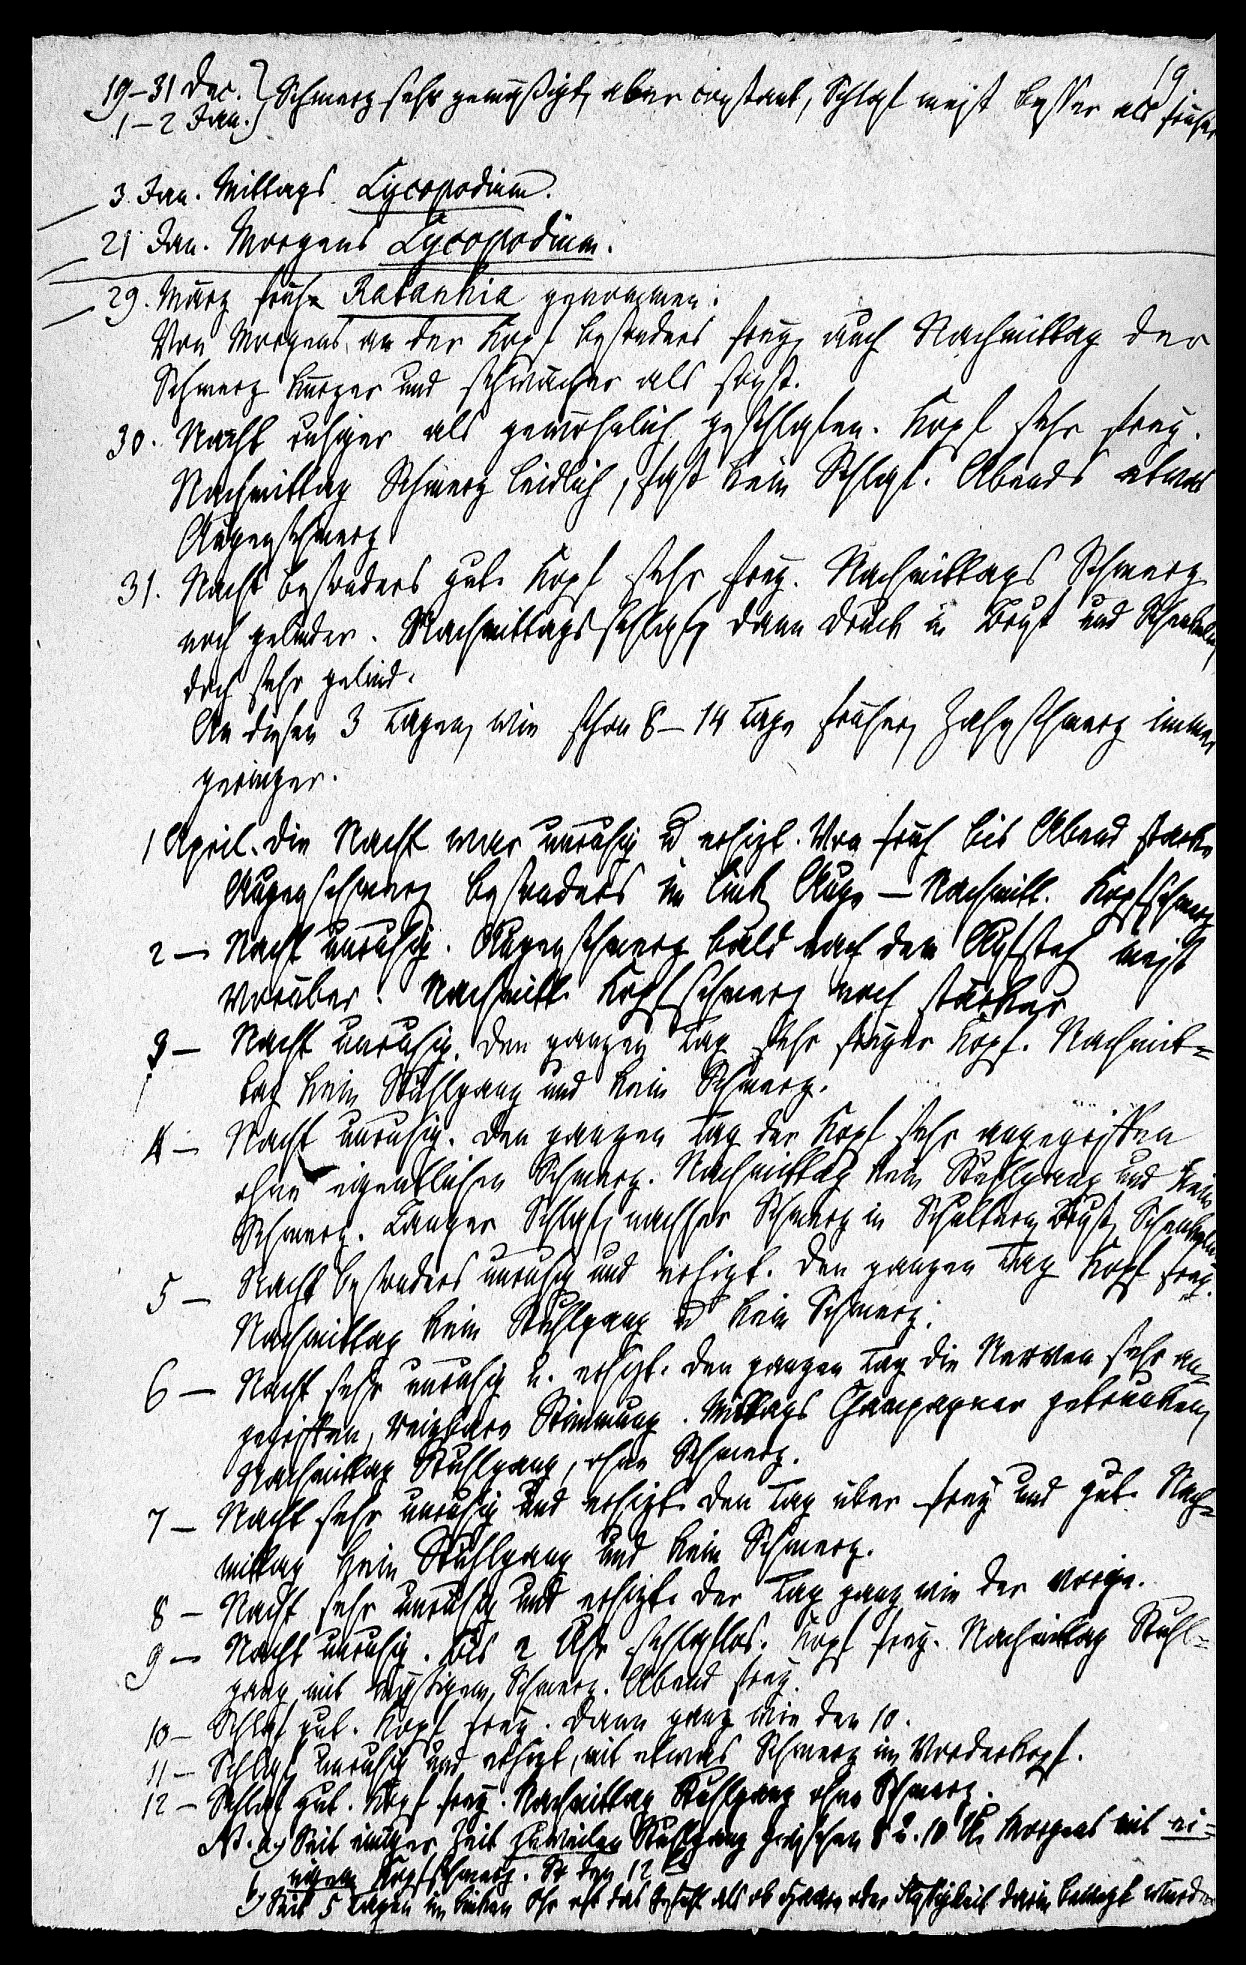 19
19–31 Dec. } Schmerz sehr gemäßigt, aber constant, Schlaf meist besser als früher
1–2 Jan. }
3. Jan. Mittags Lycopodium.
21 Jan. Morgens Lycopodium.
29. März früh Ratanhia genommen.
Von Morgens an der Kopf besonders frey, auch Nachmittag der
Schmerz kürzer und schwächer als sonst.
30. Nacht ruhiger als gewöhnlich geschlafen. Kopf sehr frey.
Nachmittag Schmerz leidlich, fast kein Schlaf. Abends etwas
Augenschmerz
31. Nacht besonders gut. Kopf sehr frey. Nachmittags Schmerz
noch gelinder. Nachmittagsschlaf, dann Druck in Brust und Schenkeln,
doch sehr gelind.
An diesen 3 Tagen, wie schon 8–14 Tage früher, Zahnschmerz immer
geringer.
1 April. Die Nacht war unruhig u erhizt. Von früh bis Abend starke
Augenschmerz besonders im link Auge – Nachmitt. Kopfschmerz
2 – Nacht unruhig. Augenschmerz bald nach dem Aufsteh meist
vorüber. Nachmitt. Kopfschmerz noch stärker
3 – Nacht unruhig. Den ganzen Tag sehr freyer Kopf. Nachmit=
tag kein Stuhlgang und kein Schmerz.
4 – Nacht unruhig. Den ganzen Tag der Kopf sehr angegriffen
ohne eigentlichen Schmerz. Nachmittag kein Stuhlgang und kein
Schmerz. Langer Schlaf, nachher Schmerz in Schultern, Brust, Schenkeln
5 – Nacht besonders unruhig und erhizt. Den ganzen Tag Kopf frey.
Nachmittag kein Stuhlgang u kein Schmerz.
6 – Nacht sehr unruhig u. erhizt. Den ganzen Tag die Nerven sehr an=
gegriffen, reizbare Stimmung. Mittags Champagner getrunken,
Nachmittag Stuhlgang, ohne Schmerz.
7 – Nacht sehr unruhig und erhizt. Den Tag über frey und gut. Nach=
mittag kein Stuhlgang und kein Schmerz.
8 – Nacht sehr unruhig und erhizt. Der Tag ganz wie der vorige.
9 – Nacht unruhig. Bis 2 Uhr schlaflos. Kopf frey. Nachmittag Stuhl=
gang mit mäßigem Schmerz. Abend frey.
10 – Schlaf gut. Kopf frey. Dann ganz wie den 10.
11 – Schlaf unruhig und erhizt, mit etwas Schmerz im Vorderkopf.
12 – Schlaf gut. Kopf frey. Nachmittag Stuhlgang ohne Schmerz.
N. a) Seit einiger Zeit zuweilen Stuhlgang zwischen 8 u. 10 U. Morgens mit ei=
nigem Kopfschmerz. So den 12
b) Seit 5 Tagen im linken Ohr oft das Gefühl als ob Haare oder Flüßigkeit darin bewegt würden